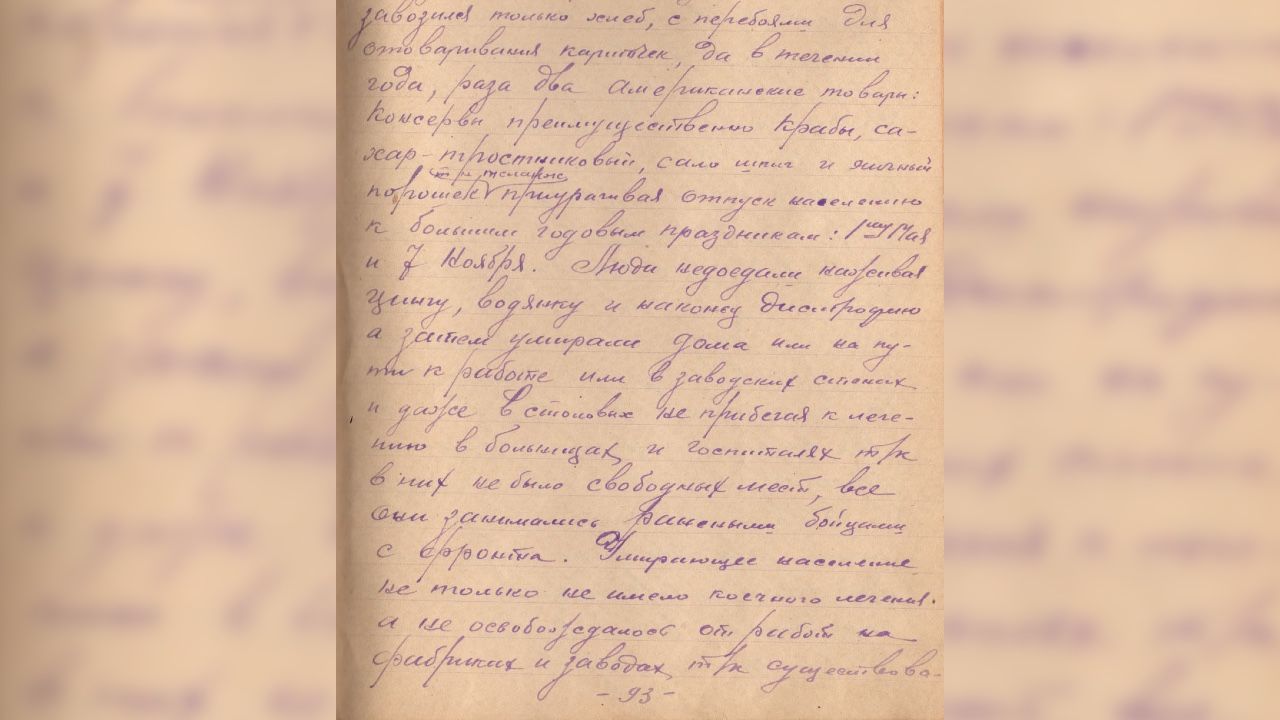 завозился только хлеб, с перебоями для
отоваривания карточек, да в течении
года, раза два Американские товары:
Консервы преимущественно Крабы, са-
хар-тростниковый, сало шпиг и яичный
порошек приурачивая отпуск населению
к большим годовым праздникам: 1му Мая
и 7 Ноября. Люди недоедали наживая
Цингу, водянку и наконец Дистрофию
а затем умирали дома или на пу-
ти к работе или в заводских стенах
и даже в столовых не прибегая к лече-
нию в больницах и госпиталях т/к
в них не было свободных мест, все
они занимались ранеными бойцами
с фронта. Умирающее население
не только не имело коечного лечения.
и не освобождалось от работ на
фабриках и заводах, т/к существова-
- 93 -